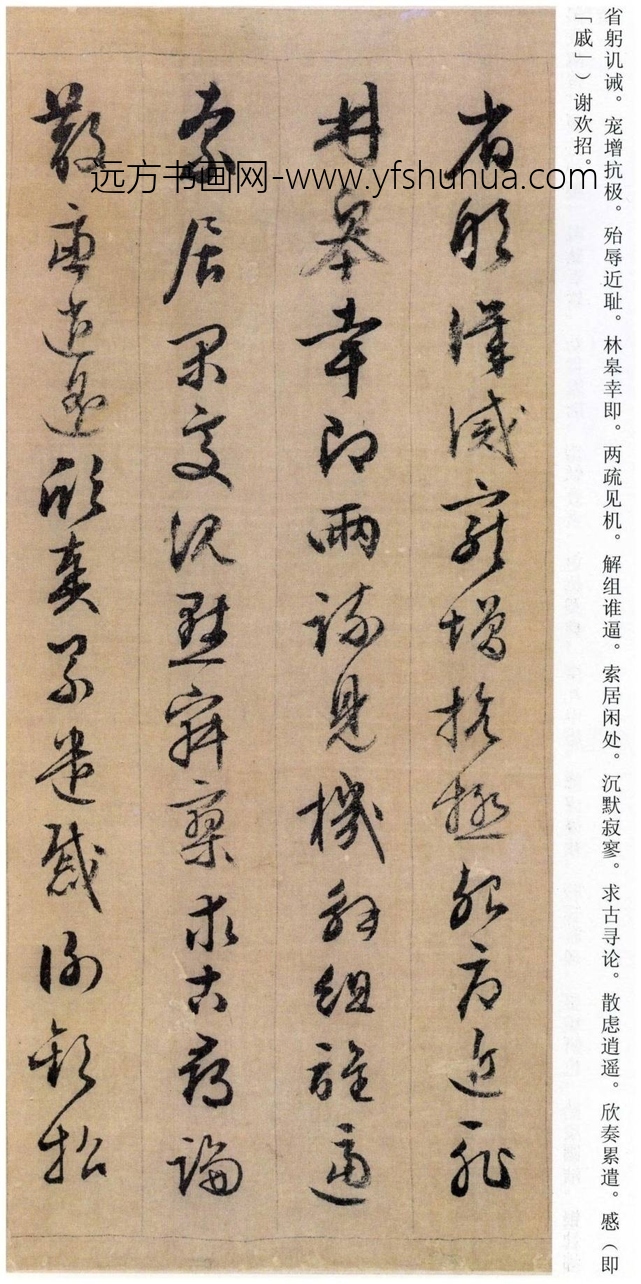 省躬讥诫。宠增抗极。殆辱近耻。林皋幸即。两疏见机。解组谁逼。索居闲处。沉默寂寥。求古寻论。散虑逍遥。欣奏累遣。慼（即
「戚」）谢欢招。
省躬譏誡寵增抗極殆辱近耻
林皋幸即兩疏見機解組誰逼
索居閑處沉默寂寥求古尋論
散慮逍遥欣奏累遣慼謝歡招
远方书画网-www.yfshuhua.com